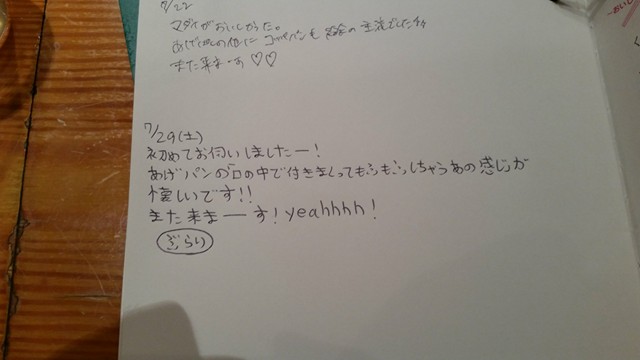 7/22
マダイがおいしかった。
あげパンの他に コッペパンも 給食の 主流でした
また来まーす♡♡
7/29(土)
初めてお伺いしましたー!
あげパンの口の中で付きまくってもふもふしちゃうあの感じが
懐しいです!!
また来まーす! yeahhhh!
ぎらり